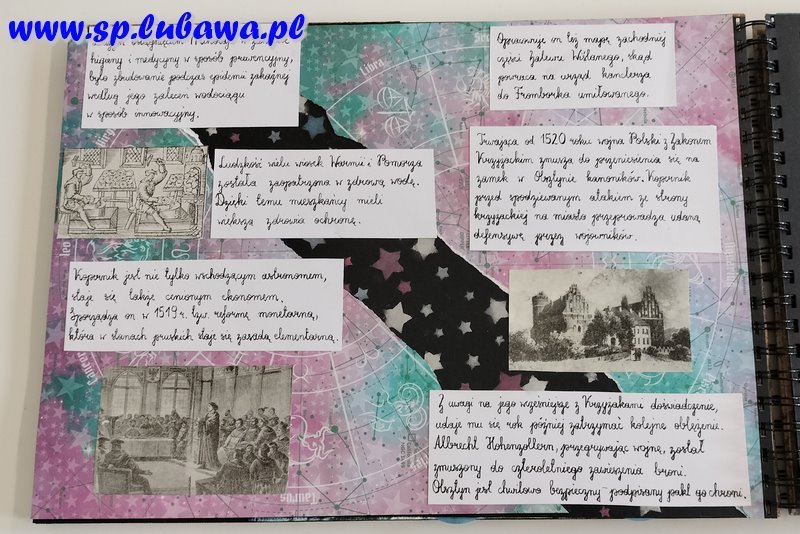 www.sp.lubawa.pl
higieny i medycyny w sposób prewencyjny,
było zbudowanie podczas epidemii zakaźnej
według jego zaleceń wodociągu
w sposób innowacyjny.
Ludzkość wielu wiosek Warmii i Pomorza
została zaopatrzona w zdrową wodę.
Dzięki temu mieszkańcy mieli
większą zdrowia ochronę.
Kopernik jest nie tylko wschodzącym astronomem,
staje się także cenionym ekonomem.
Sporządza on w 1519 r. tzw. reformę monetarną,
która w stanach pruskich staje się zasadą elementarną.
Opracowuje on też mapę zachodniej
części Zalewu Wiślanego, skąd
powraca na urząd kanclerza
do Fromborka umiłowanego.
Trwająca od 1520 roku wojna Polski z Zakonem
Krzyżackim zmusza do przeniesienia się na
zamek w Olsztynie kanoników. Kopernik
przed spodziewanym atakiem ze strony
krzyżackiej na miasto przeprowadza udaną
defensywę przez wojowników.
Z uwagi na jego wcześniejsze z Krzyżakami doświadczenie,
udaje mu się rok później zatrzymać kolejne oblężenie.
Albrecht Hohenzollern, przegrywając wojnę, został
zmuszony do czteroletniego zawieszenia broni.
Olsztyn jest chwilowo bezpieczny - podpisany pakt go chroni.
Libra
leo
Cancer
Taurus